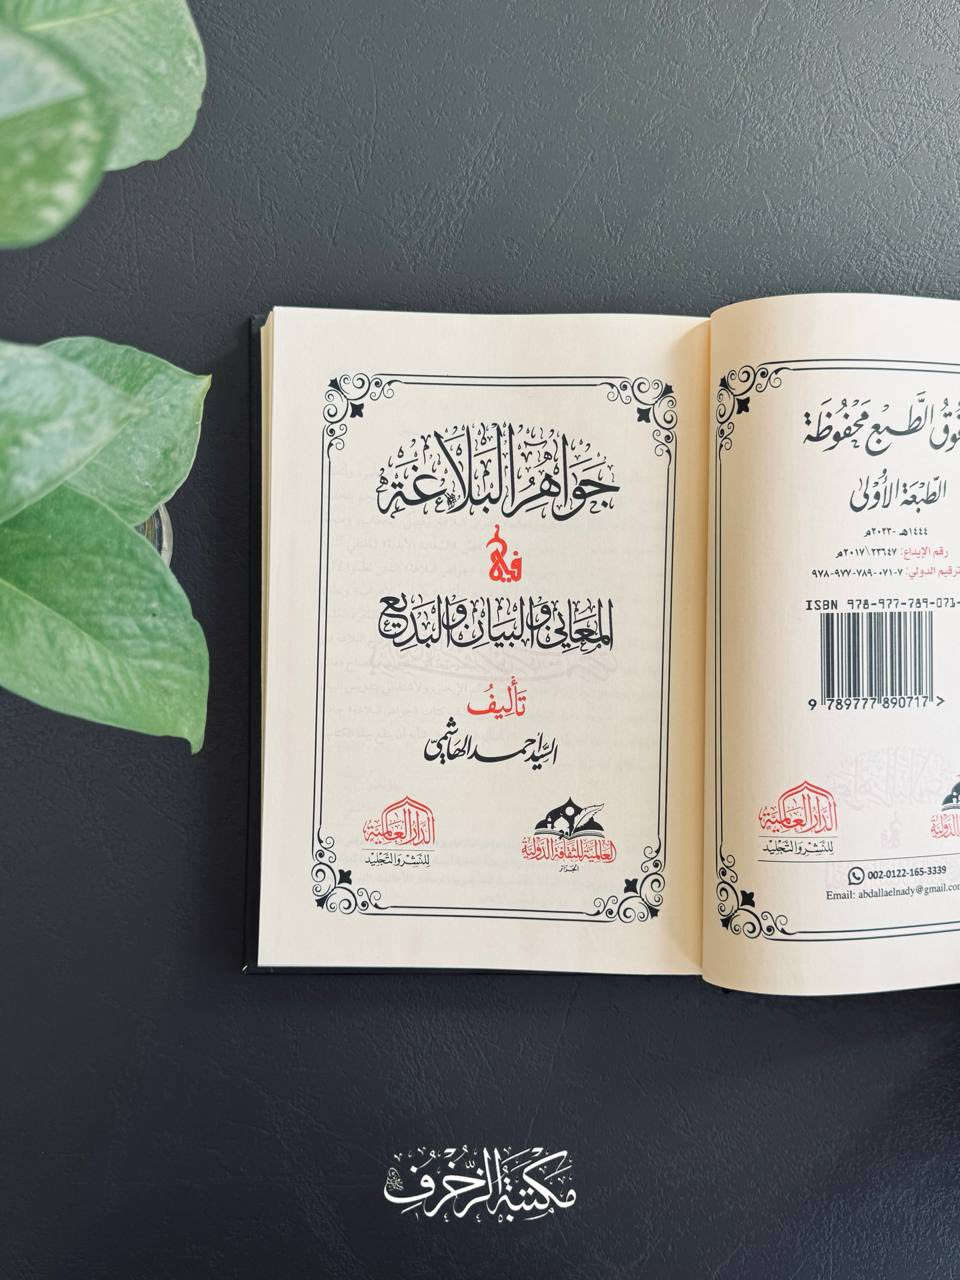 جَوَاهِرُ البَلَاغَةِ
فِي
المَعَانِي وَالبَيَانِ وَالبَدِيعِ
تَأْلِيفُ
السَّيِّد أحمد الهَاشِمِيّ
العَالَمِيَّة لِلثَّقَافَةِ الدَّوْلِيَّة
الجزائر
الدَّارُ العَالَمِيَّة
لِلنَّشْرِ وَالتَّجْلِيد
الطَّبْعِ مَحْفُوظَة
الطَّبْعَة الأُوْلَىٰ
١٤٤٤هـ -٢٠٢٣م
رقم الإيداع: ٢٠١٧/٢٣٦٤٧م
ترقيم الدولي: ٧-٠٧١-٧٨٩-٩٧٧-٩٧٨
ISBN 978-977-789-071-
9 789777 890717 >
الدَّارُ العَالَمِيَّة
لِلنَّشْرِ وَالتَّجْلِيد
002-0122-165-3339
Email: abdallaelnady@gmail.com
مَكْتَبَةُ الزُّخْرُفِ